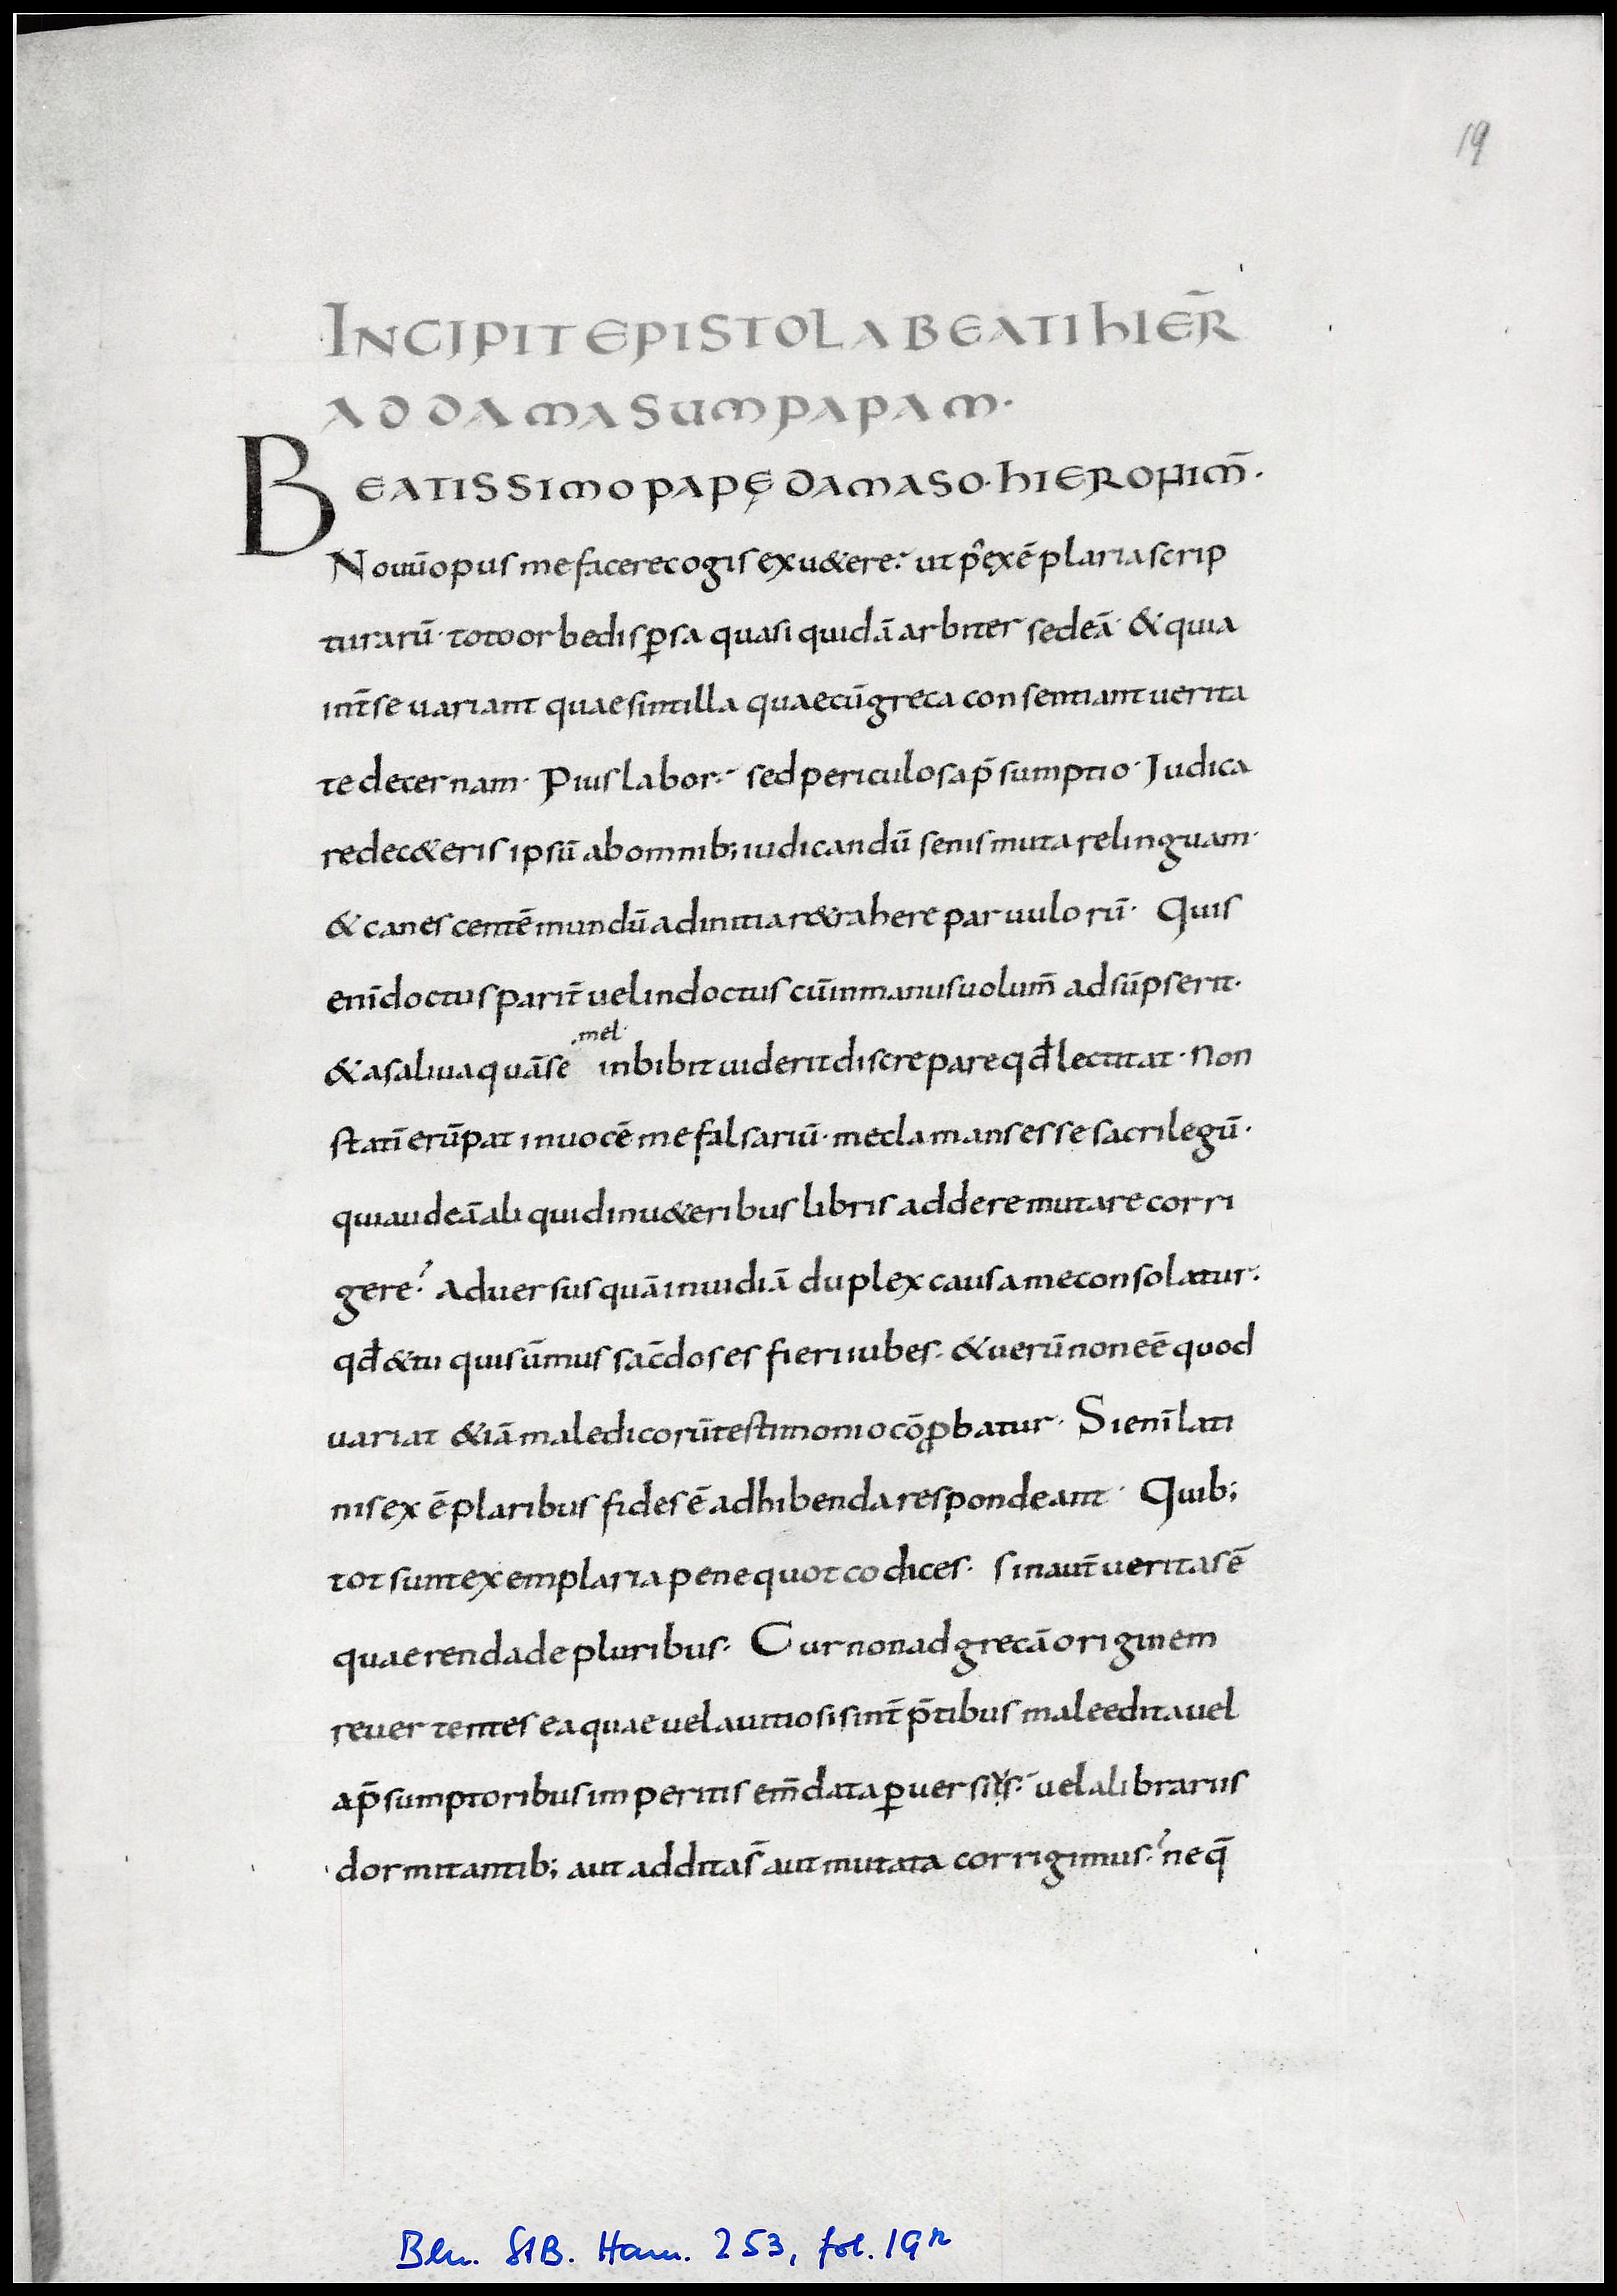 19
INCIPIT EPISTOLA BEATI hIER̄
AD DAMASUM PAPAM·
BEATISSIMO PAPĘ DAMASO· hIERONIM̄·
Nouū opus me facere cogis ex u&ere·̓ ut p̂ exēplaria scrip
turarū· toto orbe disꝑsa quasi quidā arbiter sedeā· & quia
int̄ se uariant quae sint illa quae cū greca consentiant uerita
te decernam· Pius labor·̓ sed periculosa p̄sumptio· Iudica
re de c&eris ipsū ab omnib; iudicandū senis mutare linguam·
& canescentē mundū ad initia r&rahere paruulorū· Quis
enī doctus parit̄ uel indoctus cū in manus uolum̄ adsūpserit·
mel·
& a saliua quā se inbibit uiderit discrepare qđ lectitat· Non
statī erūpat in uocē me falsariū· me clamans esse sacrilegū·
qui audeā aliquid in u&eribus libris addere mutare corri
gere? Aduersus quā inuidiā duplex causa me consolatur·
qđ & tu qui sūmus sac̄dos es fieri iubes· & uerū non eē quod
uariat &iā maledicorū testimonio cōꝓbatur· Si enī lati
nis exēplaribus fides ē adhibenda respondeant· Quib;
tot sunt exemplaria pene quot codices· sin aut̄ ueritas ē
quaerenda de pluribus· Cur non ad grecā originem
reuertentes ea quae uel a uitiosis int̄p̄tibus male edita uel
a p̄sumptoribus imperitis em̄data ꝑuersius·̓ uel a librariis
dormitantib; aut addita s̄ aut mutata corrigimus? neq̄
Bln. StB. Ham. 253, fol. 19r